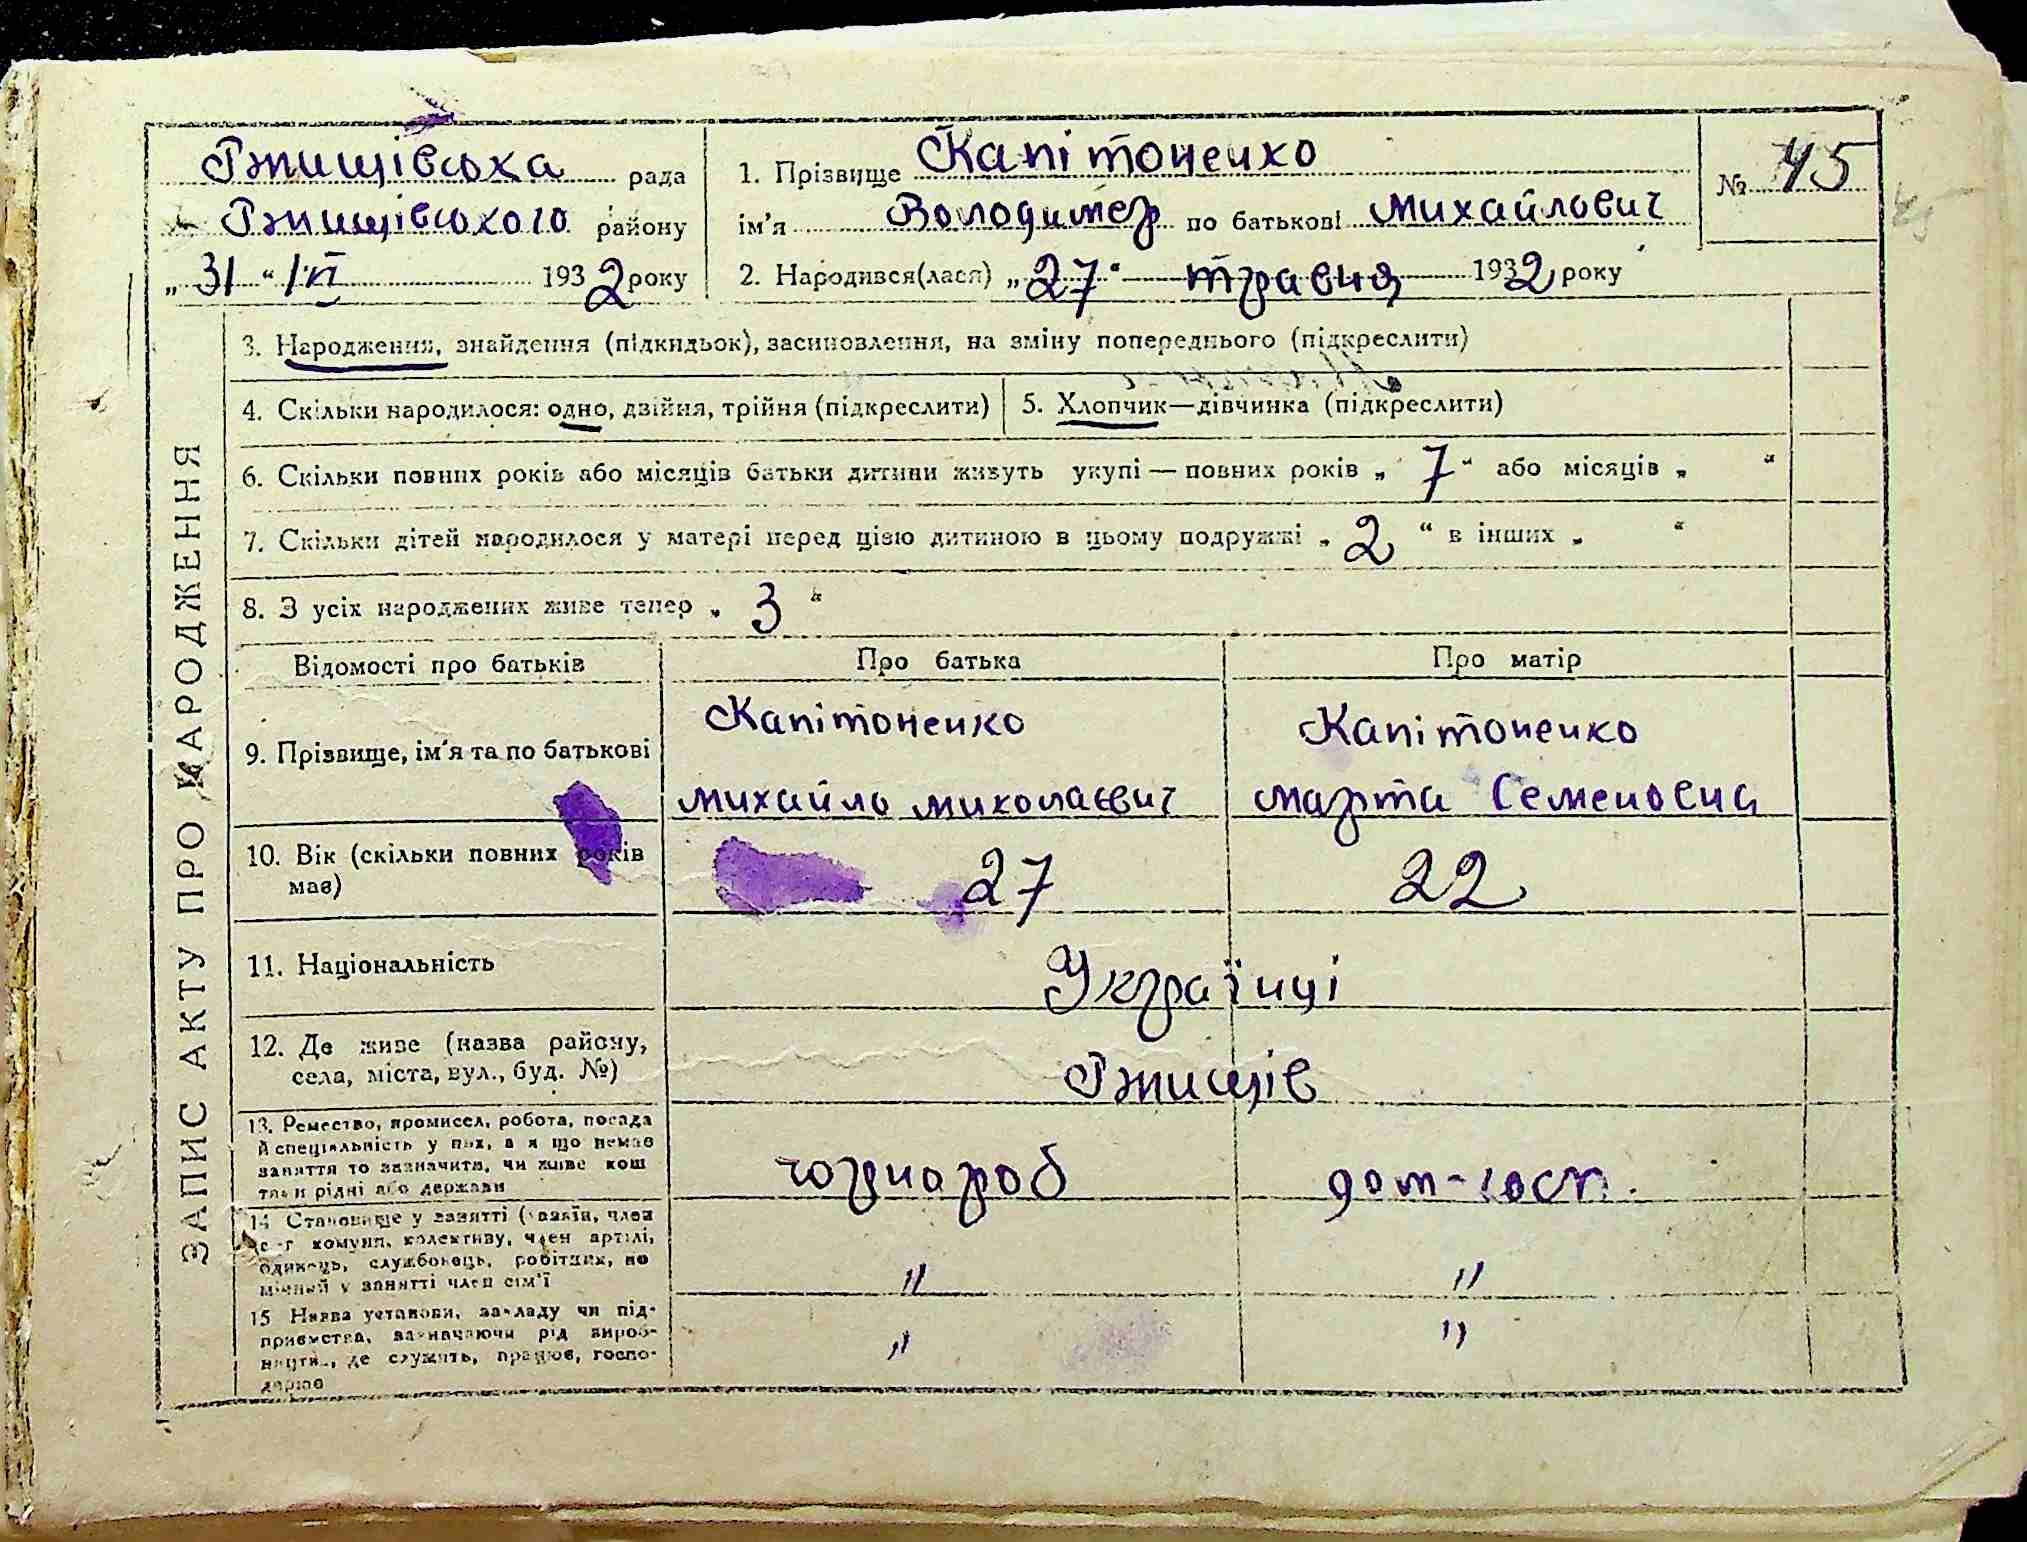 Ржищівська рада
Ржищівського району
„31“ 193 2 року
1. Прізвище Капітоненко
ім'я Володимер по батькові Михайлович
2. Народився(лася) „27“ травня 1932 року
№ 45
45
ЗАПИС АКТУ ПРО НАРОДЖЕННЯ
3. Народження, знайдення (підкидьок), засиновлення, на зміну попереднього (підкреслити)
4. Скільки народилося: одно, двійня, трійня (підкреслити)
5. Хлопчик—дівчинка (підкреслити)
6. Скільки повних років або місяців батьки дитини живуть укупі — повних років „7“ або місяців „ “
7. Скільки дітей народилося у матері перед цією дитиною в цьому подружжі „2“ в інших „ “
8. З усіх народжених живе тепер „3“
Відомості про батьків
Про батька
Про матір
9. Прізвище, ім'я та по батькові
Капітоненко
Михайло Миколаєвич
Капітоненко
Марта Семеновна
10. Вік (скільки повних років
має)
27
22
11. Національність
Українці
12. Де живе (назва району,
села, міста, вул., буд. №)
Ржищів
13. Ремество, промисел, робота, посада
й спеціяльність у них, а я що немає
заняття то зазначити, чи живе кош
тами рідні або держави
чорнороб
дом-госп.
14 Становище у занятті (хазяїн, член
с-г комуни, колективу, член артілі,
одинець, службовець, робітник, по
мічний у занятті член сім'ї
"
"
15 Назва установи, закладу чи під-
приємства, зазначаючи рід вироб-
ництва, де служить, працює, госпо-
дарює
"
"